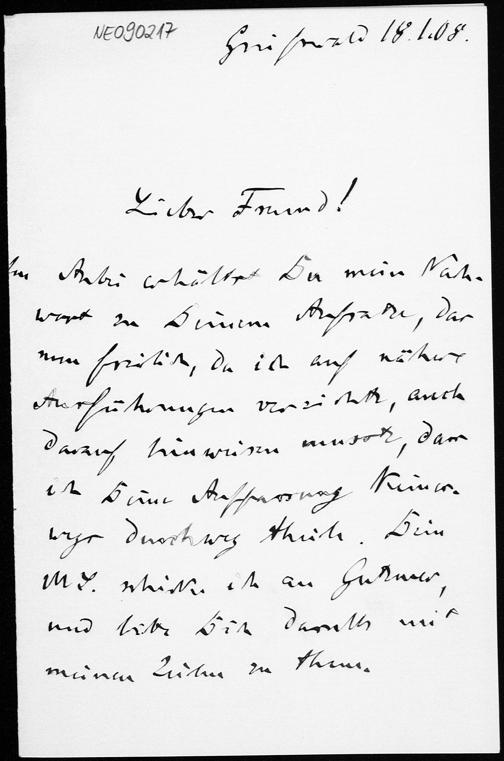 NE090217
Greifswald 18.1.08.
Lieber Freund!
Anbei erhältst Du mein Nach-
wort zu Deinem Aufsatze, das
nun freilich, da ich auf nähere
Ausführungen verzichtete, auch
darauf hinweisen musste, dass
ich Deine Auffassung keines-
wegs durchweg theile. Dein
MS. schicke ich an Gutzmer,
und bitte Dich dasselbe mit
meinen Zeilen zu thun.